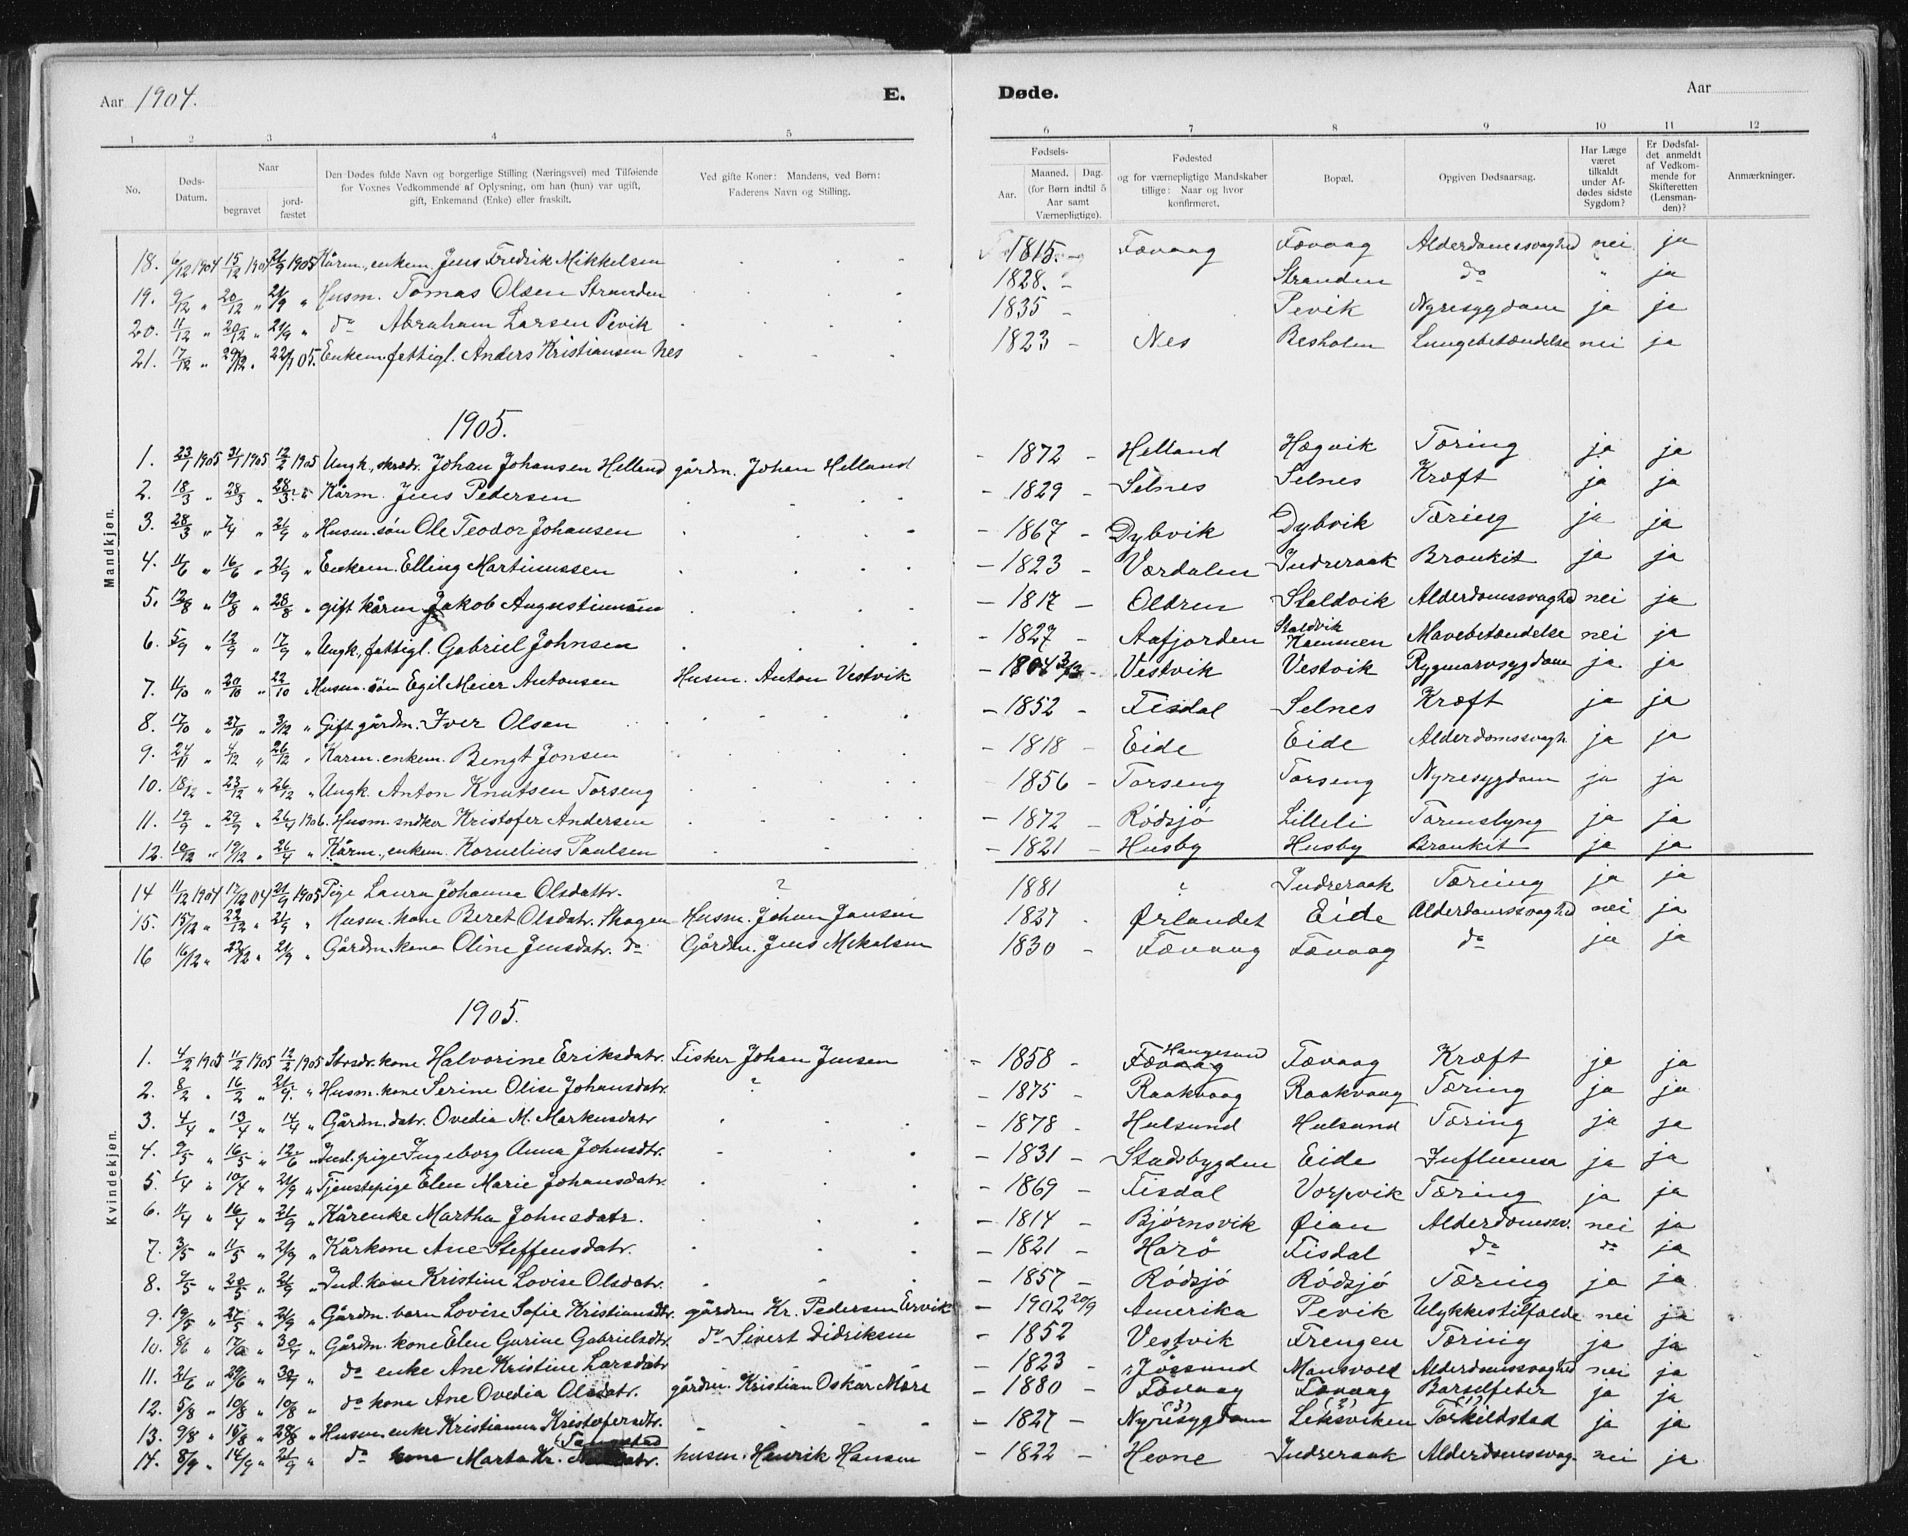 Aar 1904. E. Døde. Aar
1 2 3 4 5 6 7 8 9 10 11 12
No. Døds-Datum. Naar begravet jord-fæstet Den Dødes fulde Navn og borgerlige Stilling (Næringsvei) med Tilføiende for Voxnes Vedkommende af Oplysning, om han (hun) var ugift, gift, Enkemand (Enke) eller fraskilt. Ved gifte Koner: Mandens, ved Børn: Faderens Navn og Stilling. Fødsels- Aar. Maaned. Dag. (for Børn indtil 5 Aar samt Værnepligtige). Fødested og for værnepligtige Mandskaber tillige: Naar og hvor konfirmeret. Bopæl. Opgiven Dødsaarsag. Har Læge været tilkaldt under Afdødes sidste Sygdom? Er Dødsfaldet anmeldt af Vedkommende for Skifteretten (Lensmanden)? Anmærkninger.
Mandkjøn.
18. 6/12 1904 15/12 1904 21/9 1905 Kårm., enkem. Jens Fredrik Mikkelsen 1815. Fævaag Fævaag Alderdomssvaghed nei ja
19. 9/12 " 20/12 " 21/9 " Husm. Tomas Olsen Stranden 1828. - Stranden do " ja
20. 11/12 " 20/12 " 21/9 " do Abraham Larsen Pevik 1835 - Pevik Nyresygdom ja ja
21. 17/12 " 29/12 " 22/1 05. Enkem. fattigl. Anders Kristiansen Nes 1823 - Nes Besholm Lungebetændelse nei ja
1905.
1. 23/1 1905 31/1 1905 12/2 1905 Ungk., skrædr. Johan Johansen Helland gårdm. Johan Helland - 1872 - Helland Hægvik Tæring ja ja
2. 18/3 " 28/3 " 28/3 Kårm. Jens Pedersen - 1829 - Selnes Selnes Kræft ja ja
3. 28/3 " 7/4 " 21/9 " Husm. søn Ole Teodor Johansen - 1867 - Dybvik Dybvik Tæring ja ja
4. 11/6 " 16/6 " 21/9 " Enkem. Elling Martinussen - 1823 - Værdalen Indreraak Bronkit ja ja
5. 12/8 " 19/8 " 28/8 " gift kårm Jakob Augustinusen - 1817 - Oldren Staldvik Alderdomssvaghed nei ja
6. 5/9 " 12/9 " 17/9 " Ungk., fattigl. Gabriel Johnsen - 1827 - Aafjorden Staldvik Hammen Mavebetændelse nei ja
7. 11/10 " 20/10 " 22/10 " Husm. søn Egil Meier Antonsen Husm. Anton Vestvik - 1904 3/12 - Vestvik Vestvik Rygmarvsygdom ja ja
8. 17/10 " 27/10 " 3/12 " Gift gårdm. Iver Olsen - 1852 - Fisdal Selnes Kræft ja ja
9. 24/11 " 4/12 " 26/12 " Kårm. enkem. Bengt Jonsen - 1818 - Eide Eide Alderdomssvagh. ja ja
10. 18/12 " 23/12 " 26/12 " Ungk. Anton Knutsen Torseng - 1856 - Torseng Torseng Nyresygdom ja ja
11. 19/9 " 29/9 " 26/4 1906. Husm. sndker Kristofer Andersen - 1872 - Rødsjø Lilleli Tarmslyng ja ja
12. 10/12 " 19/12 " 26/4 " Kårm., enkem. Kornelius Paulsen - 1821 - Husby Husby Bronkit ja ja
Kvindekjøn.
14 11/12 1904 17/12 04 21/9 1905 Pige Laura Johanna Olsdattr. ? 1881 ? Indreraak Tæring ja ja
15. 15/12 " 22/12 " 21/9 " Husm. kone Beret Olsdatr. Skagen Husm. Johan Jansen 1827 - Ørlandet Eide Alderdomssvaghed nei ja
16 16/12 " 22/12 " 21/9 " Gårdm. kone Oline Jensdatr. do Gårdm. Jens Mikalsen 1830 - Fævaag Fævaag do ja ja
1905.
1. 4/2 1905 11/2 1905 12/2 1905 Strsdr. kone Halvorine Eriksdatr. Fisker Johan Jensen - 1858 - Hangesund Fævaag Fævaag Kræft ja ja
2. 8/2 " 16/2 " 21/9 " Husm. kone Serine Olise Johansdatr. ? - 1875 - Raakvaag Raakvaag Tæring ja ja
3. 4/4 " 13/4 " 14/4 " Gårdm. datr. Ovedia M. Markusdatr - 1878 - Hulsund Hulsund Tæring ja ja
4. 9/5 " 16/5 " 12/6 " Ind. pige Ingeborg Anna Johnsdtr. - 1831 - Stadsbygden Eide Influensa ja ja
5. 1/4 " 10/4 " 21/9 " Tjenstepige Elen Marie Johansdatr. - 1869 - Fisdal Vorpvik Tæring ja ja
6. 11/4 " 16/4 " 21/9 " Kårenke Martha Johnsdatr. - 1814 - Bjørnsvik Øian Alderdomssv. nei ja
7. 3/5 " 11/5 " 21/9 " Kårkone Ane Steffensdatr. - 1821 - Harø Fisdal do do ja
8. 9/5 " 20/5 " 21/9 " Ind. kone Kristine Lovise Olsdatr. - 1857 - Rødsjø Rødsjø Tæring ja ja
9. 19/5 " 27/5 " 21/9 " Gårdm. barn Lovise Sofie Kristiansdtr. gårdm Kr. Pedersen Ervik - 1902 20/9 Amerika Pevik Ulykkestilfælde nei ja
10. 8/6 " 17/6 " 30/7 " Gårdm. kone Elen Gurine Gabrielsdtr. do Sivert Didriksen - 1852 Vestvik Frengen Tæring ja ja
11. 21/6 " 29/6 " 30/7 " do enke Ane Kristine Larsdatr - 1823 - Jøssund Mansvold Alderdomssvaghed nei ja
12. 5/8 " 10/8 " 10/8 " do kone Ane Ovedia Olsdatr. gårdm. Kristian Oskar Møre - 1880 - Fævaag Fævaag Barselfeber ja ja
13. 9/8 " 15/8 " 28/8 " Husm. enke Kristianna Kristofersdtr. - 1827 - Nyresygdom (3) Leksviken (2) Torkildstad (1) ja ja
14. 8/9 " 14/9 " 21/9 " do kone Marta Kr. datr. husm. Henrik Hansen - 1822 - Hevne Indreraak Alderdomssvag. nei ja